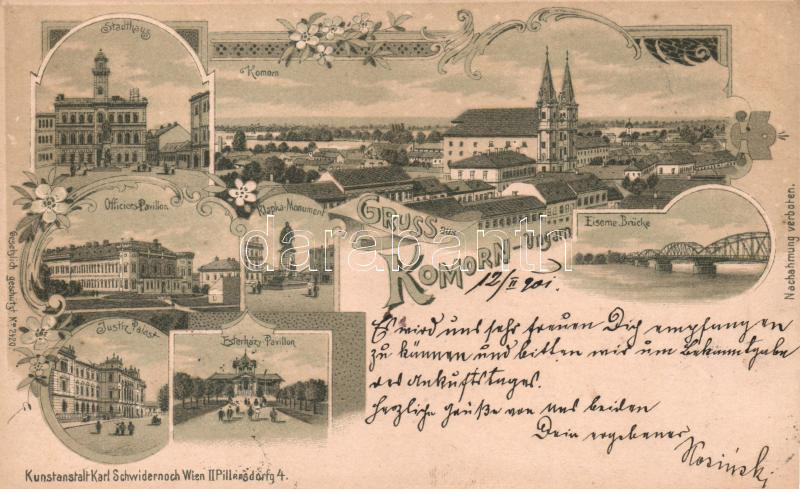 Stadthaus
Komorn
Officiers-Pavillon
Klapka-Monument
Gruss aus
Komorn-Ungarn
Eiserne Brücke
Justiz Palast
Esterházy Pavillon
darabanth.com
12/II 901.
Es wird uns sehr freuen Dich empfangen
zu können und bitten wir um Bekanntgabe
des Ankuftstages.
Herzliche Grüße von uns beiden
Dein ergebener
Gesetzlich geschützt No 2120
Nachahmung verboten.
Kunstanstalt Karl Schwidernoch Wien II Pillersdorfg 4.